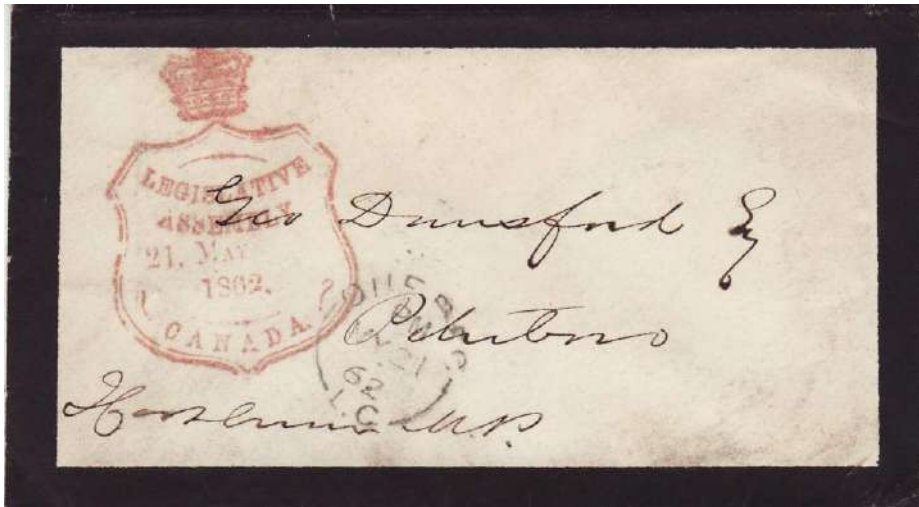 LEGISLATIVE
ASSEMBLY
21. MAY
1862.
CANADA
Geo Dunsford Esq
Peterboro
QUEBEC
AM
21
62
L.C
M.P.